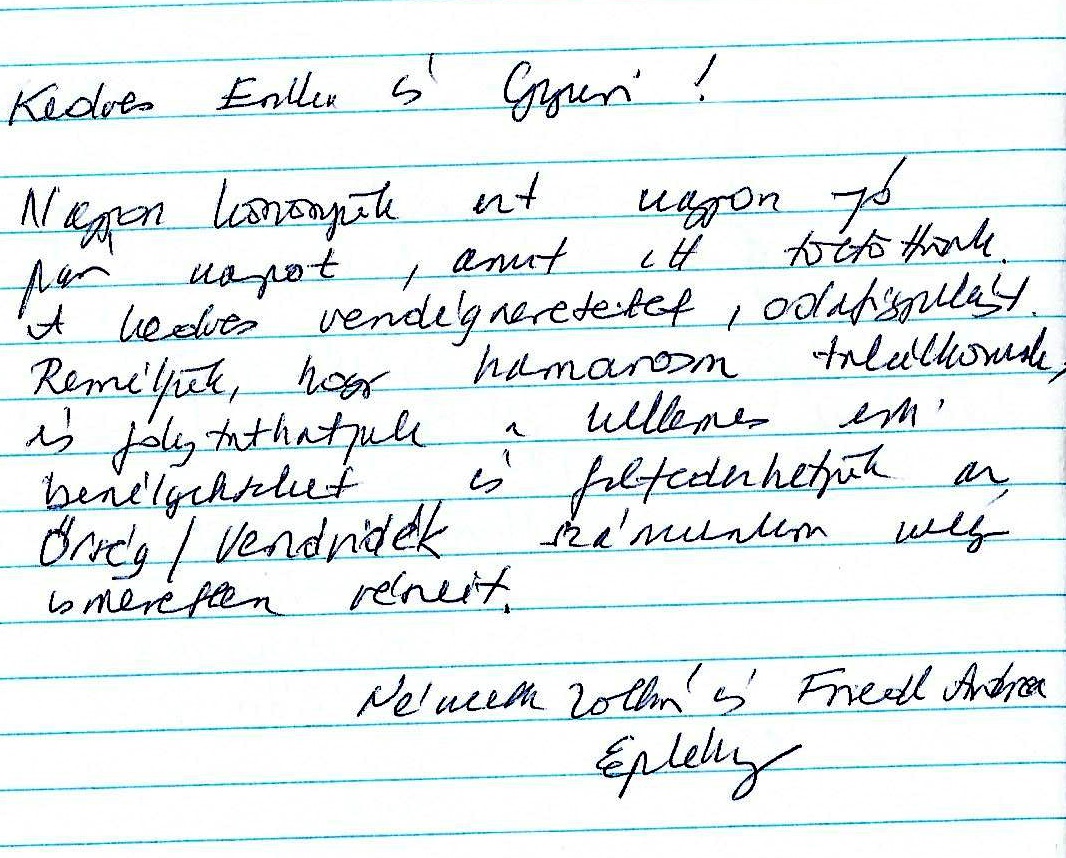 Kedves Emília és Gyuri!
Nagyon köszönjük ezt nagyon jó
pár napot, amit itt töltöttünk.
A kedves vendégszeretetet, odafigyelést.
Reméljük, hogy hamarosan találkozunk,
és folytathatjuk a kellemes esti
beszélgetéseket és felfedezhetjük az
Őrség / Vendvidék számunkra még
ismeretlen részeit.
Németh Zoltán és Friedl Andrea